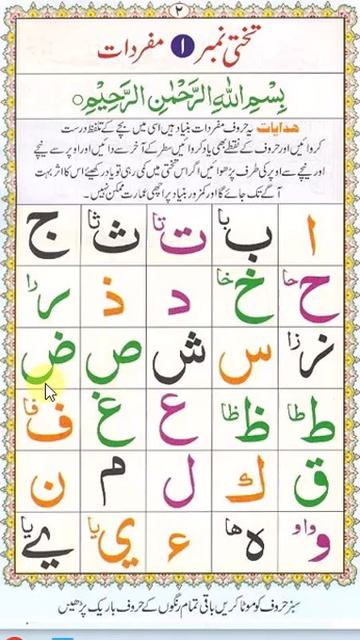 ۲
تختی نمبر ۱ مفردات
بِسْمِ اللهِ الرَّحْمٰنِ الرَّحِيْمِ
ہدایات یہ حروف مفردات بنیاد ہیں اسی میں بچے کے تلفظ درست
کروائیں اور حروف کے نقطے بھی یاد کروائیں سرے کے آخر سے دائیں اور اوپر سے نیچے
اور نیچے سے اوپر کی طرف پڑھوائیں اگر اس تختی میں کمی رہی تو یاد رکھیئے اس کا اثر بہت
آگے تک جائے گا اور کمزور بنیاد پر اچھی عمارت ممکن نہیں۔
ا ب با ت تا ث ثا ج
ح حا خ خا د ذ ر را
ز زا س ش ص ض
ط طا ظ ظا ع غ ف فا
ق ك ل م ن
و واو ہ ھا ء ي یا ے یا
سبز حروف کو موٹا کریں باقی تمام رنگوں کے حروف باریک پڑھیں